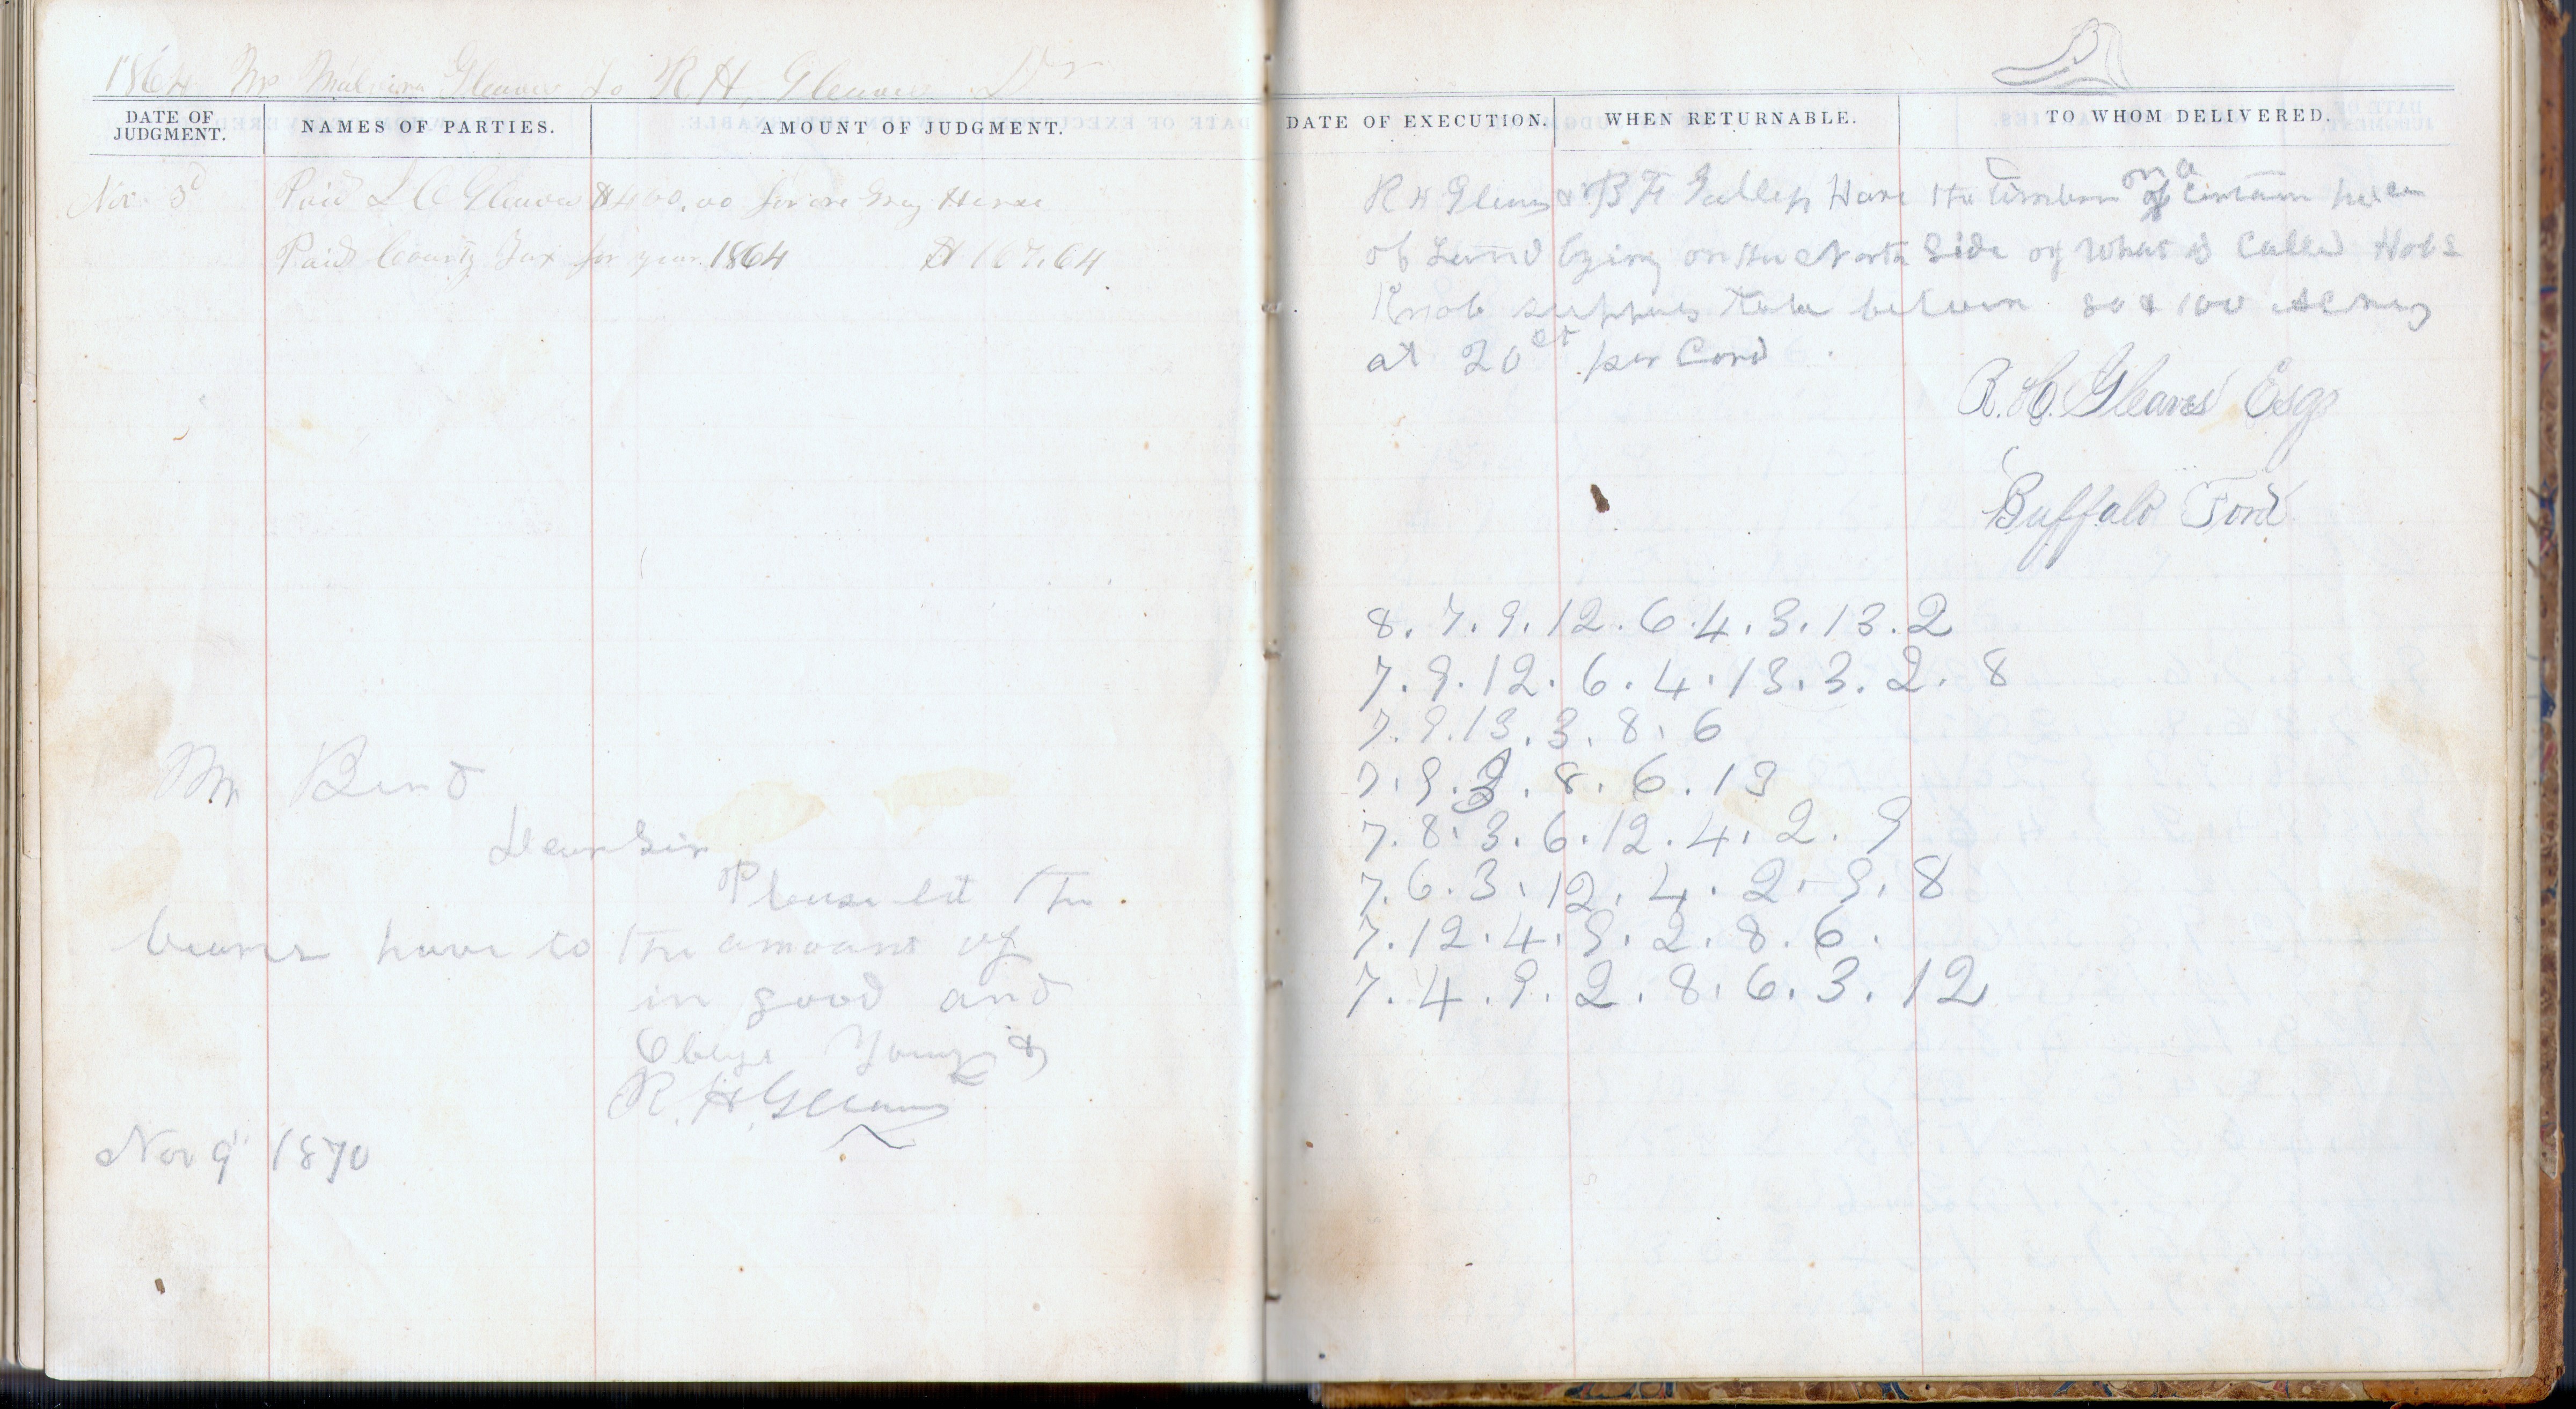 1864 Mrs Malvina Gleaves To R H, Gleaves Dr
DATE OF JUDGMENT.
NAMES OF PARTIES.
AMOUNT OF JUDGMENT.
Nov 3d Paid L C Gleaves $400.00 for one Gray Horse
Paid County Tax for year 1864 $167.64
Mr Bend
Dear Sir
Please let the
bearer have to the amount of
in good and
Oblige Yours &
R. H. Gleaves
Nov 9" 1870
DATE OF EXECUTION.
WHEN RETURNABLE.
TO WHOM DELIVERED.
R H Gleaves & B F Gallep Have the timber on a certain
of Land Lying on the North Side of What is Called Hobs
Knob between 80 & 100 Acres
at 20 ct per Cord
R. H. Gleaves Esqr
Buffalo Ford
8. 7. 9. 12. 6. 4. 3. 13. 2
7. 9. 12. 6. 4. 13. 3. 2. 8
7. 9. 13. 3. 8. 6
7. 9. 3. 8. 6. 13
7. 8. 3. 6. 12. 4. 2. 9
7. 6. 3. 12. 4. 2. 9. 8
7. 12. 4. 9. 2. 8. 6.
7. 4. 9. 2. 8. 6. 3. 12